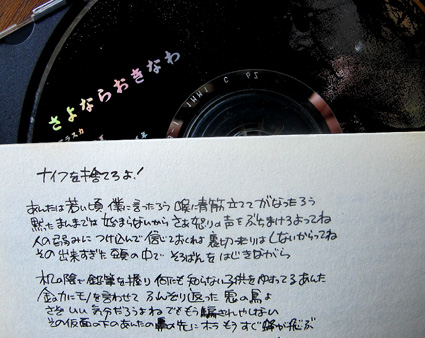 さよならおきなわ
ナイフを捨てろよ!
あんたは若い頃 僕に言ったろう 喉に青筋立ててがなったろう
黙ったまんまでは 始まらないから さあ怒りの声をぶちまけろよってね
人の弱みに つけ込んで 信じておくれよ 裏切ったりは しないからってね
その 出来すぎた 頭の中で そろばんをはじきながら
机の陰で 鉛筆を握り 何にも 知らない子供を ってる あんた
金の力に モノを言わせて ふんぞり返った 悪の鳥よ
さぞ いい 気分だろうよね でももう騙されやしない
その仮面の下のあんたの鼻の先に ホラ もうすぐ が飛ぶ